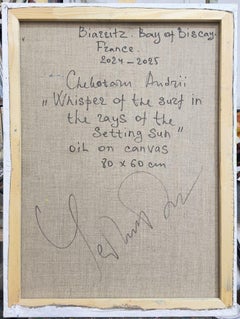 Biarritz. Bay of Biscay.
France.
2024-2025
Chebotaru Andrii
„Whisper of the surf in
the rays of the
setting sun"
oil on canvas
80 x 60 cm